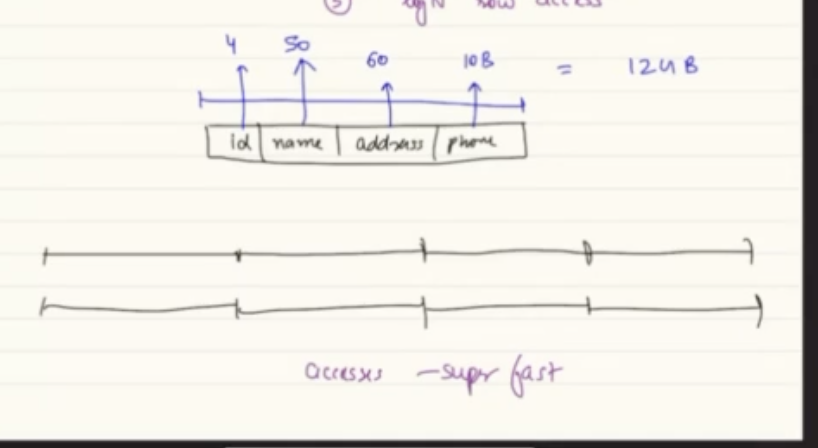 ③ row access
4 50 60 10B = 124B
id name address phone
accesses - super fast